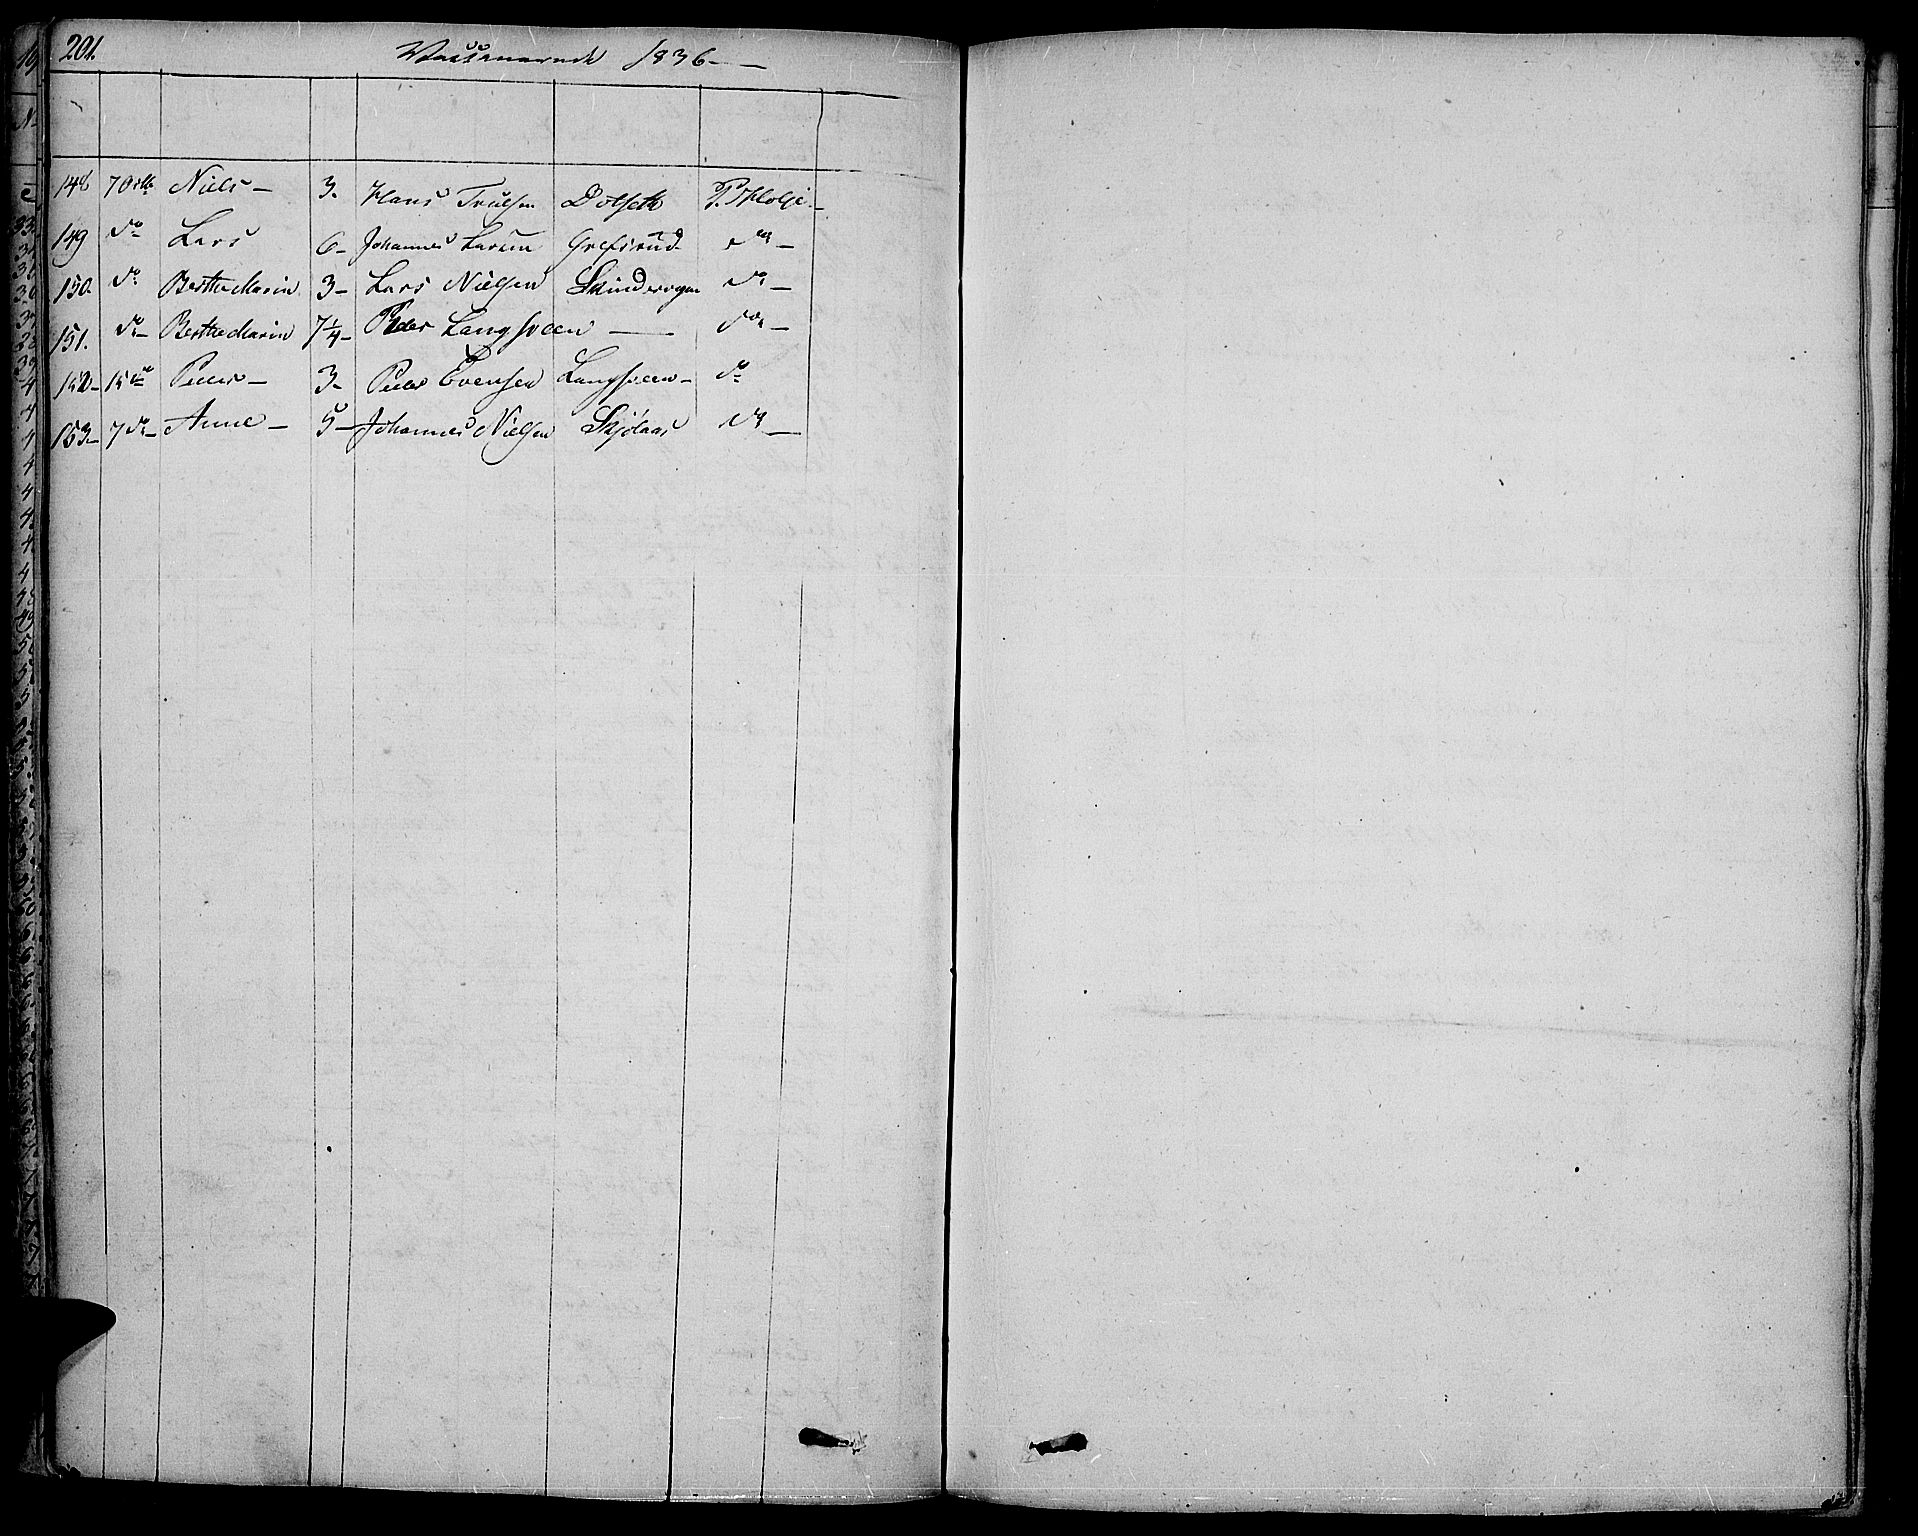 201. Vaccinerede 1836 —
148 7 Octb Niels — 3. Hans Trulsen Dolseth P. Holje —
149 do Lars 6 — Johannes Larsen Grefsrud do —
150. do Berthe Marin 3 — Lars Nielsen do —
151. do — Berthe Marin 7 1/4 — Peder Langsveen — do —
152 — 15 do Peder — 3 — Peder Evensen Langsveen — do
153 — 7 do — Anne — 5 — Johannes Nielsen Skjølaas do —